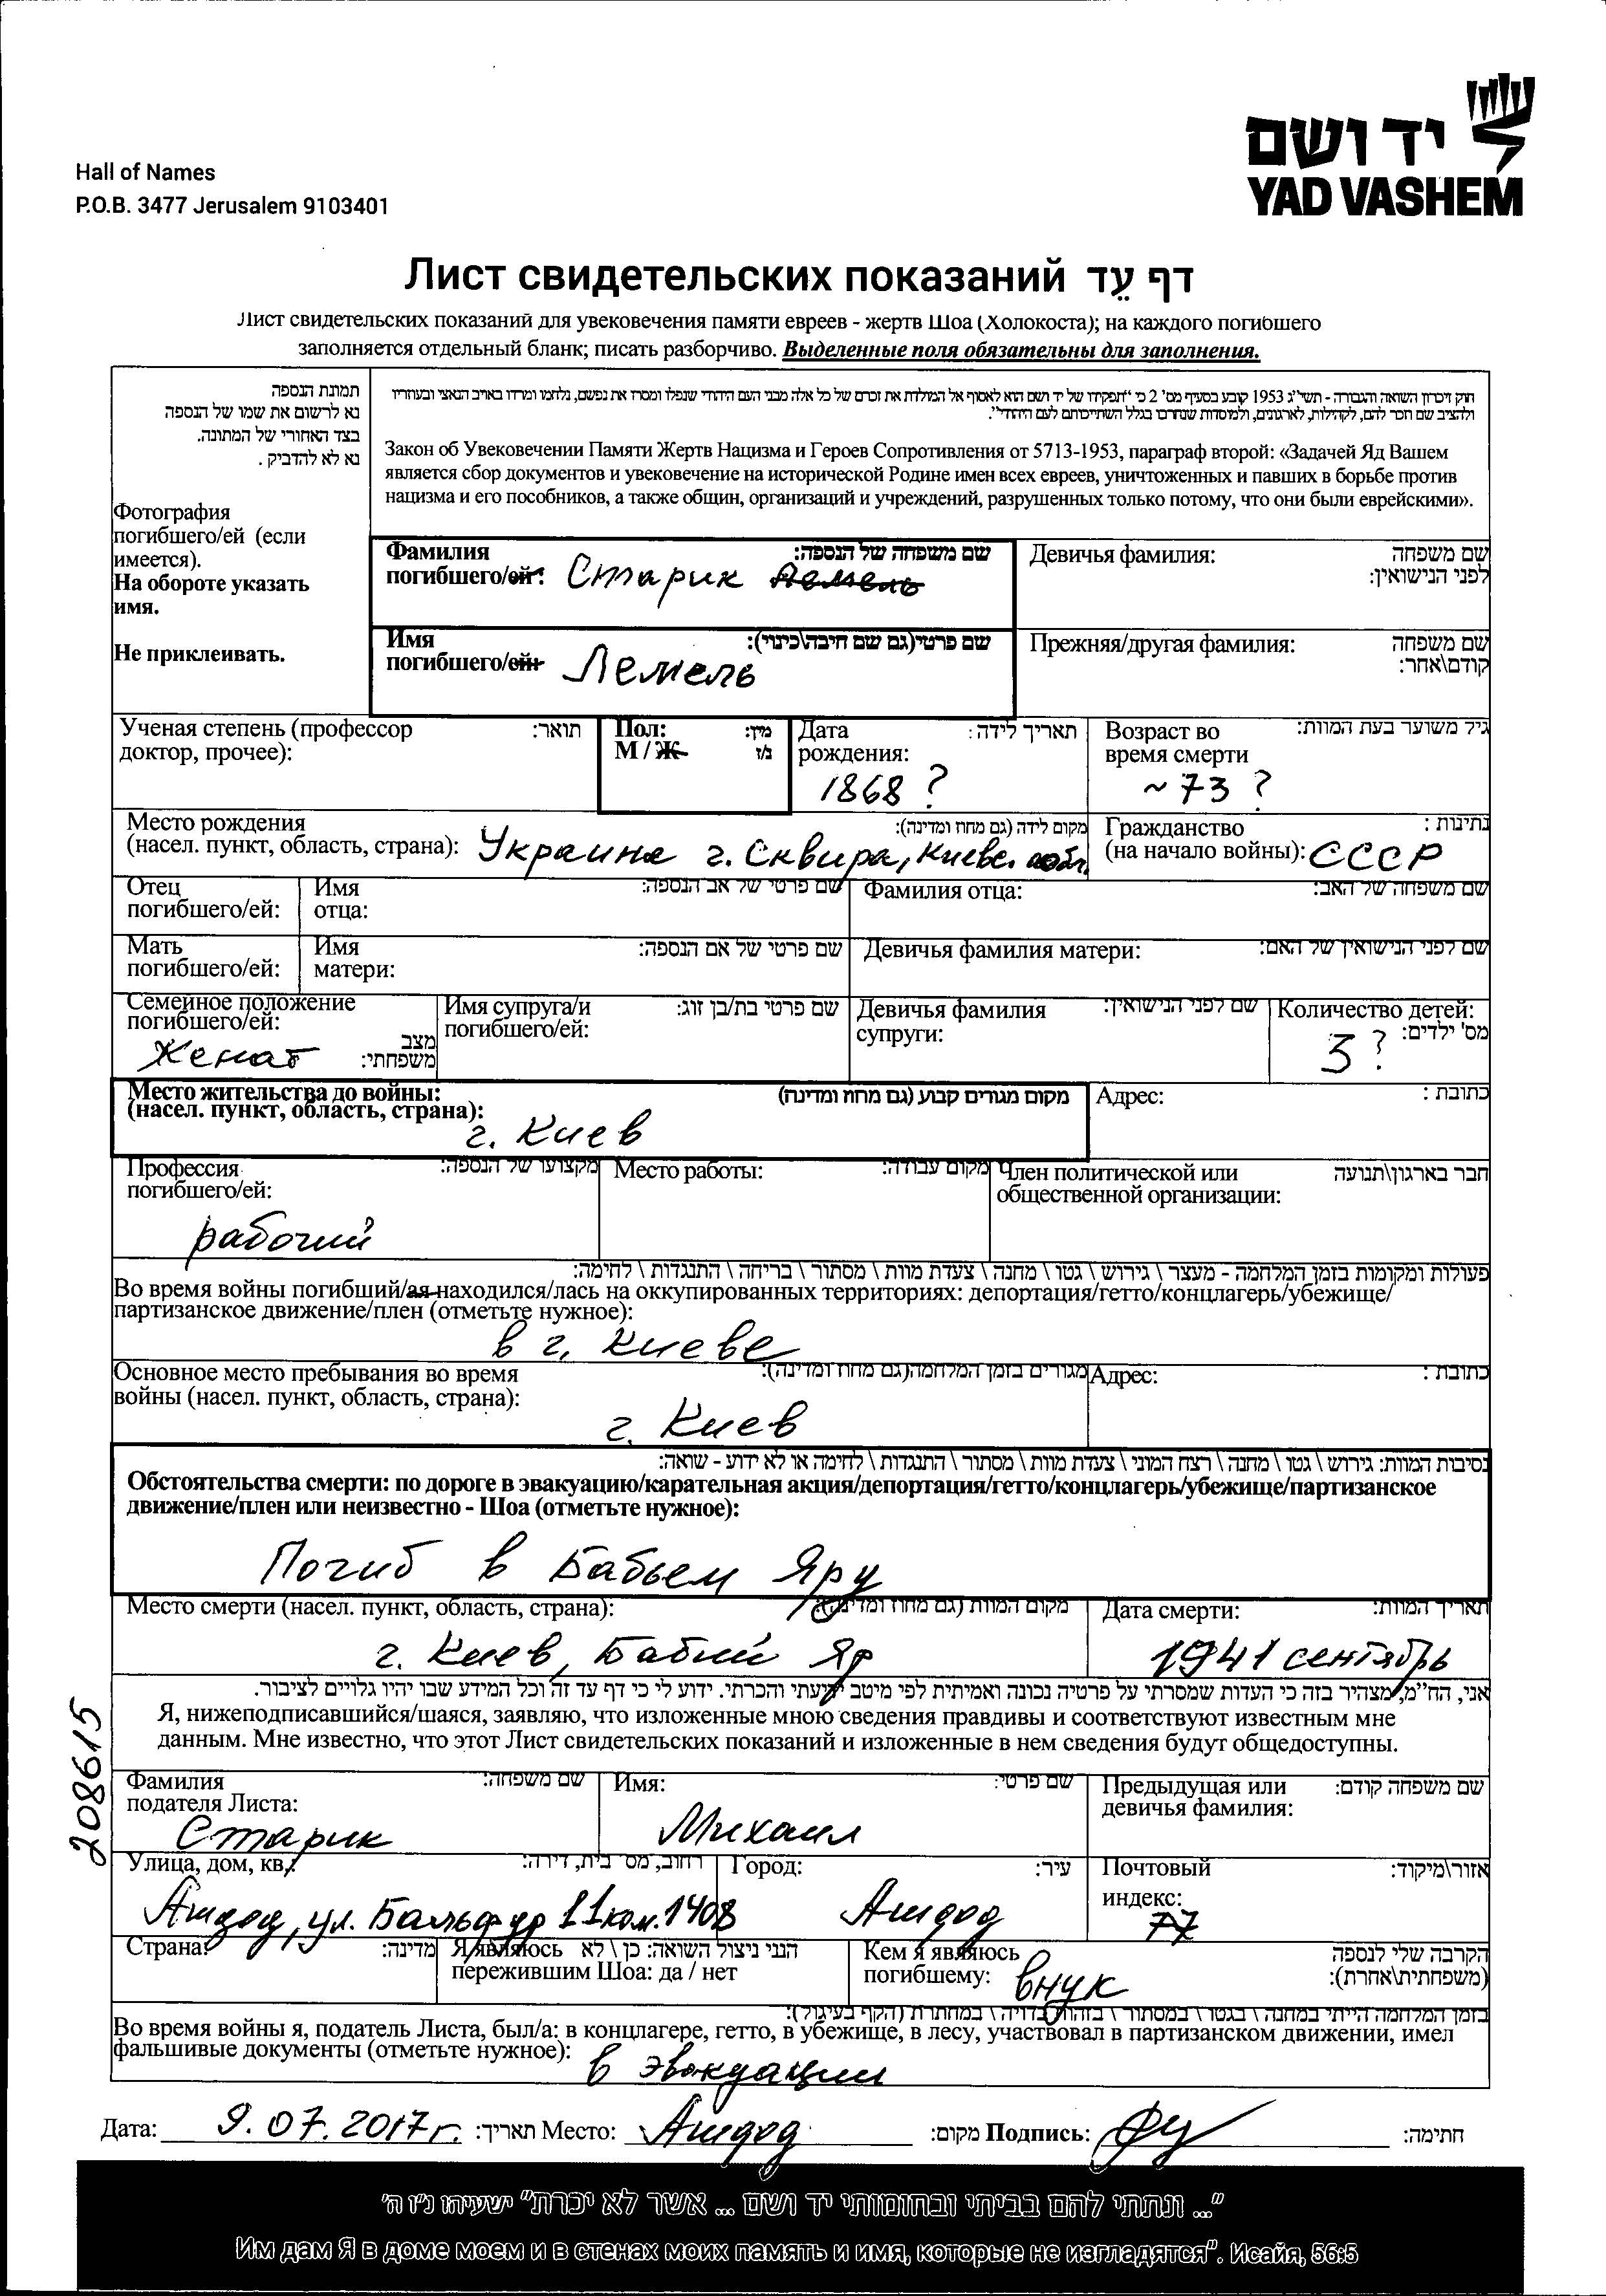 יד ושם
YAD VASHEM
Hall of Names
P.O.B. 3477 Jerusalem 9103401
Лист свидетельских показаний דף עֵד
Лист свидетельских показаний для увековечения памяти евреев - жертв Шоа (Холокоста); на каждого погибшего
заполняется отдельный бланк; писать разборчиво. Выделенные поля обязательны для заполнения.
תמונת הנספה
נא לרשום את שמו של הנספה
בצד האחורי של המתונה.
נא לא להדביק .
Фотография
погибшего/ей (если
имеется).
На обороте указать
имя.
Не приклеивать.
חוק זיכרון השואה והגבורה - תשי"ג 1953 קובע בסעיף מס' 2 כי "תפקידו של יד ושם הוא לאסוף אל המולדת את זכרם של כל אלה מבני העם היהודי שנפלו ומסרו את נפשם, נלחמו ומרדו באויב הנאצי ובעוזריו
ולהציב שם וזכר להם, לקהילות, לארגונים, ולמוסדות שנחרבו בגלל השתייכותם לעם היהודי".
Закон об Увековечении Памяти Жертв Нацизма и Героев Сопротивления от 5713-1953, параграф второй: «Задачей Яд Вашем
является сбор документов и увековечение на исторической Родине имен всех евреев, уничтоженных и павших в борьбе против
нацизма и его пособников, а также общин, организаций и учреждений, разрушенных только потому, что они были еврейскими».
Фамилия שם משפחה של הנספה:
погибшего/ей: Старик Лемель
Девичья фамилия: שם משפחה
לפני הנישואין:
Имя שם פרטי(גם שם חיבה\כינוי):
погибшего/ей Лемель
Прежняя/другая фамилия: שם משפחה
קודם\אחר:
Ученая степень (профессор תואר:
доктор, прочее):
Пол: מין:
М / Ж ז/נ
Дата תאריך לידה:
рождения:
1868 ?
Возраст во גיל משוער בעת המוות:
время смерти
~ 73 ?
Место рождения מקום לידה (גם מחוז ומדינה):
(насел. пункт, область, страна): Украина г. Сквира, Киевс. обл.
Гражданство נתינות :
(на начало войны): СССР
Отец
погибшего/ей:
Имя שם פרטי של אב הנספה:
отца:
Фамилия отца: שם משפחה של האב:
Мать
погибшего/ей:
Имя שם פרטי של אם הנספה:
матери:
Девичья фамилия матери: שם לפני הנישואין של האם:
Семейное положение
погибшего/ей: מצב
Женат משפחתי:
Имя супруга/и שם פרטי בת/בן זוג:
погибшего/ей:
Девичья фамилия שם לפני הנישואין:
супруги:
Количество детей:
מס' ילדים:
3 ?
Место жительства до войны: מקום מגורים קבוע (גם מחוז ומדינה)
(насел. пункт, область, страна):
г. Киев
Адрес: כתובת :
Профессия מקצועו של הנספה:
погибшего/ей:
рабочий
Место работы: מקום עבודה:
Член политической или חבר בארגון\תנועה
общественной организации:
פעולות ומקומות בזמן המלחמה - מעצר \ גירוש \ גטו \ מחנה \ צעדת מוות \ מסתור \ בריחה \ התנגדות \ לחימה:
Во время войны погибший/ая находился/лась на оккупированных территориях: депортация/гетто/концлагерь/убежище/
партизанское движение/плен (отметьте нужное):
в г. Киеве
Основное место пребывания во время מגורים בזמן המלחמה(גם מחוז ומדינה):
войны (насел. пункт, область, страна):
г. Киев
Адрес: כתובת :
נסיבות המוות: גירוש \ גטו \ מחנה \ רצח המוני \ צעדת מוות \ מסתור \ התנגדות \ לחימה או לא ידוע - שואה:
Обстоятельства смерти: по дороге в эвакуацию/карательная акция/депортация/гетто/концлагерь/убежище/партизанское
движение/плен или неизвестно - Шоа (отметьте нужное):
Погиб в Бабьем Яру
Место смерти (насел. пункт, область, страна): מקום המוות (גם מחוז ומדינה):
г. Киев, Бабий Яр
Дата смерти: תאריך המוות:
1941 сентябрь
אני, הח"מ, מצהיר בזה כי העדות שמסרתי על פרטיה נכונה ואמיתית לפי מיטב ידיעתי והכרתי. ידוע לי כי דף עד זה וכל המידע שבו יהיו גלויים לציבור.
Я, нижеподписавшийся/шаяся, заявляю, что изложенные мною сведения правдивы и соответствуют известным мне
данным. Мне известно, что этот Лист свидетельских показаний и изложенные в нем сведения будут общедоступны.
208615
Фамилия שם משפחה:
подателя Листа:
Старик
Имя: שם פרטי:
Михаил
Предыдущая или שם משפחה קודם:
девичья фамилия:
Улица, дом, кв. רחוב, מס' בית, דירה:
Ашдод, ул. Бальфур 11 ком. 1408
Город: עיר:
Ашдод
Почтовый אזור\מיקוד:
индекс:
77
Страна: מדינה:
Я являюсь הנני ניצול השואה: כן \ לא
пережившим Шоа: да / нет
Кем я являюсь הקרבה שלי לנספה
погибшему: внук (משפחתית\אחרת):
בזמן המלחמה הייתי במחנה \ בגטו \ במסתור \ בזהות בדויה \ במחתרת (הקף בעיגול):
Во время войны я, податель Листа, был/а: в концлагере, гетто, в убежище, в лесу, участвовал в партизанском движении, имел
фальшивые документы (отметьте нужное): в эвакуации
Дата: 9.07.2017г. תאריך: Место: Ашдод מקום: Подпись: חתימה:
"... ונתתי להם בביתי ובחומותי יד ושם ... אשר לא יכרת" ישעיהו נ"ו ה'
Им дам Я в доме моем и в стенах моих память и имя, которые не изгладятся". Исайя, 56:5